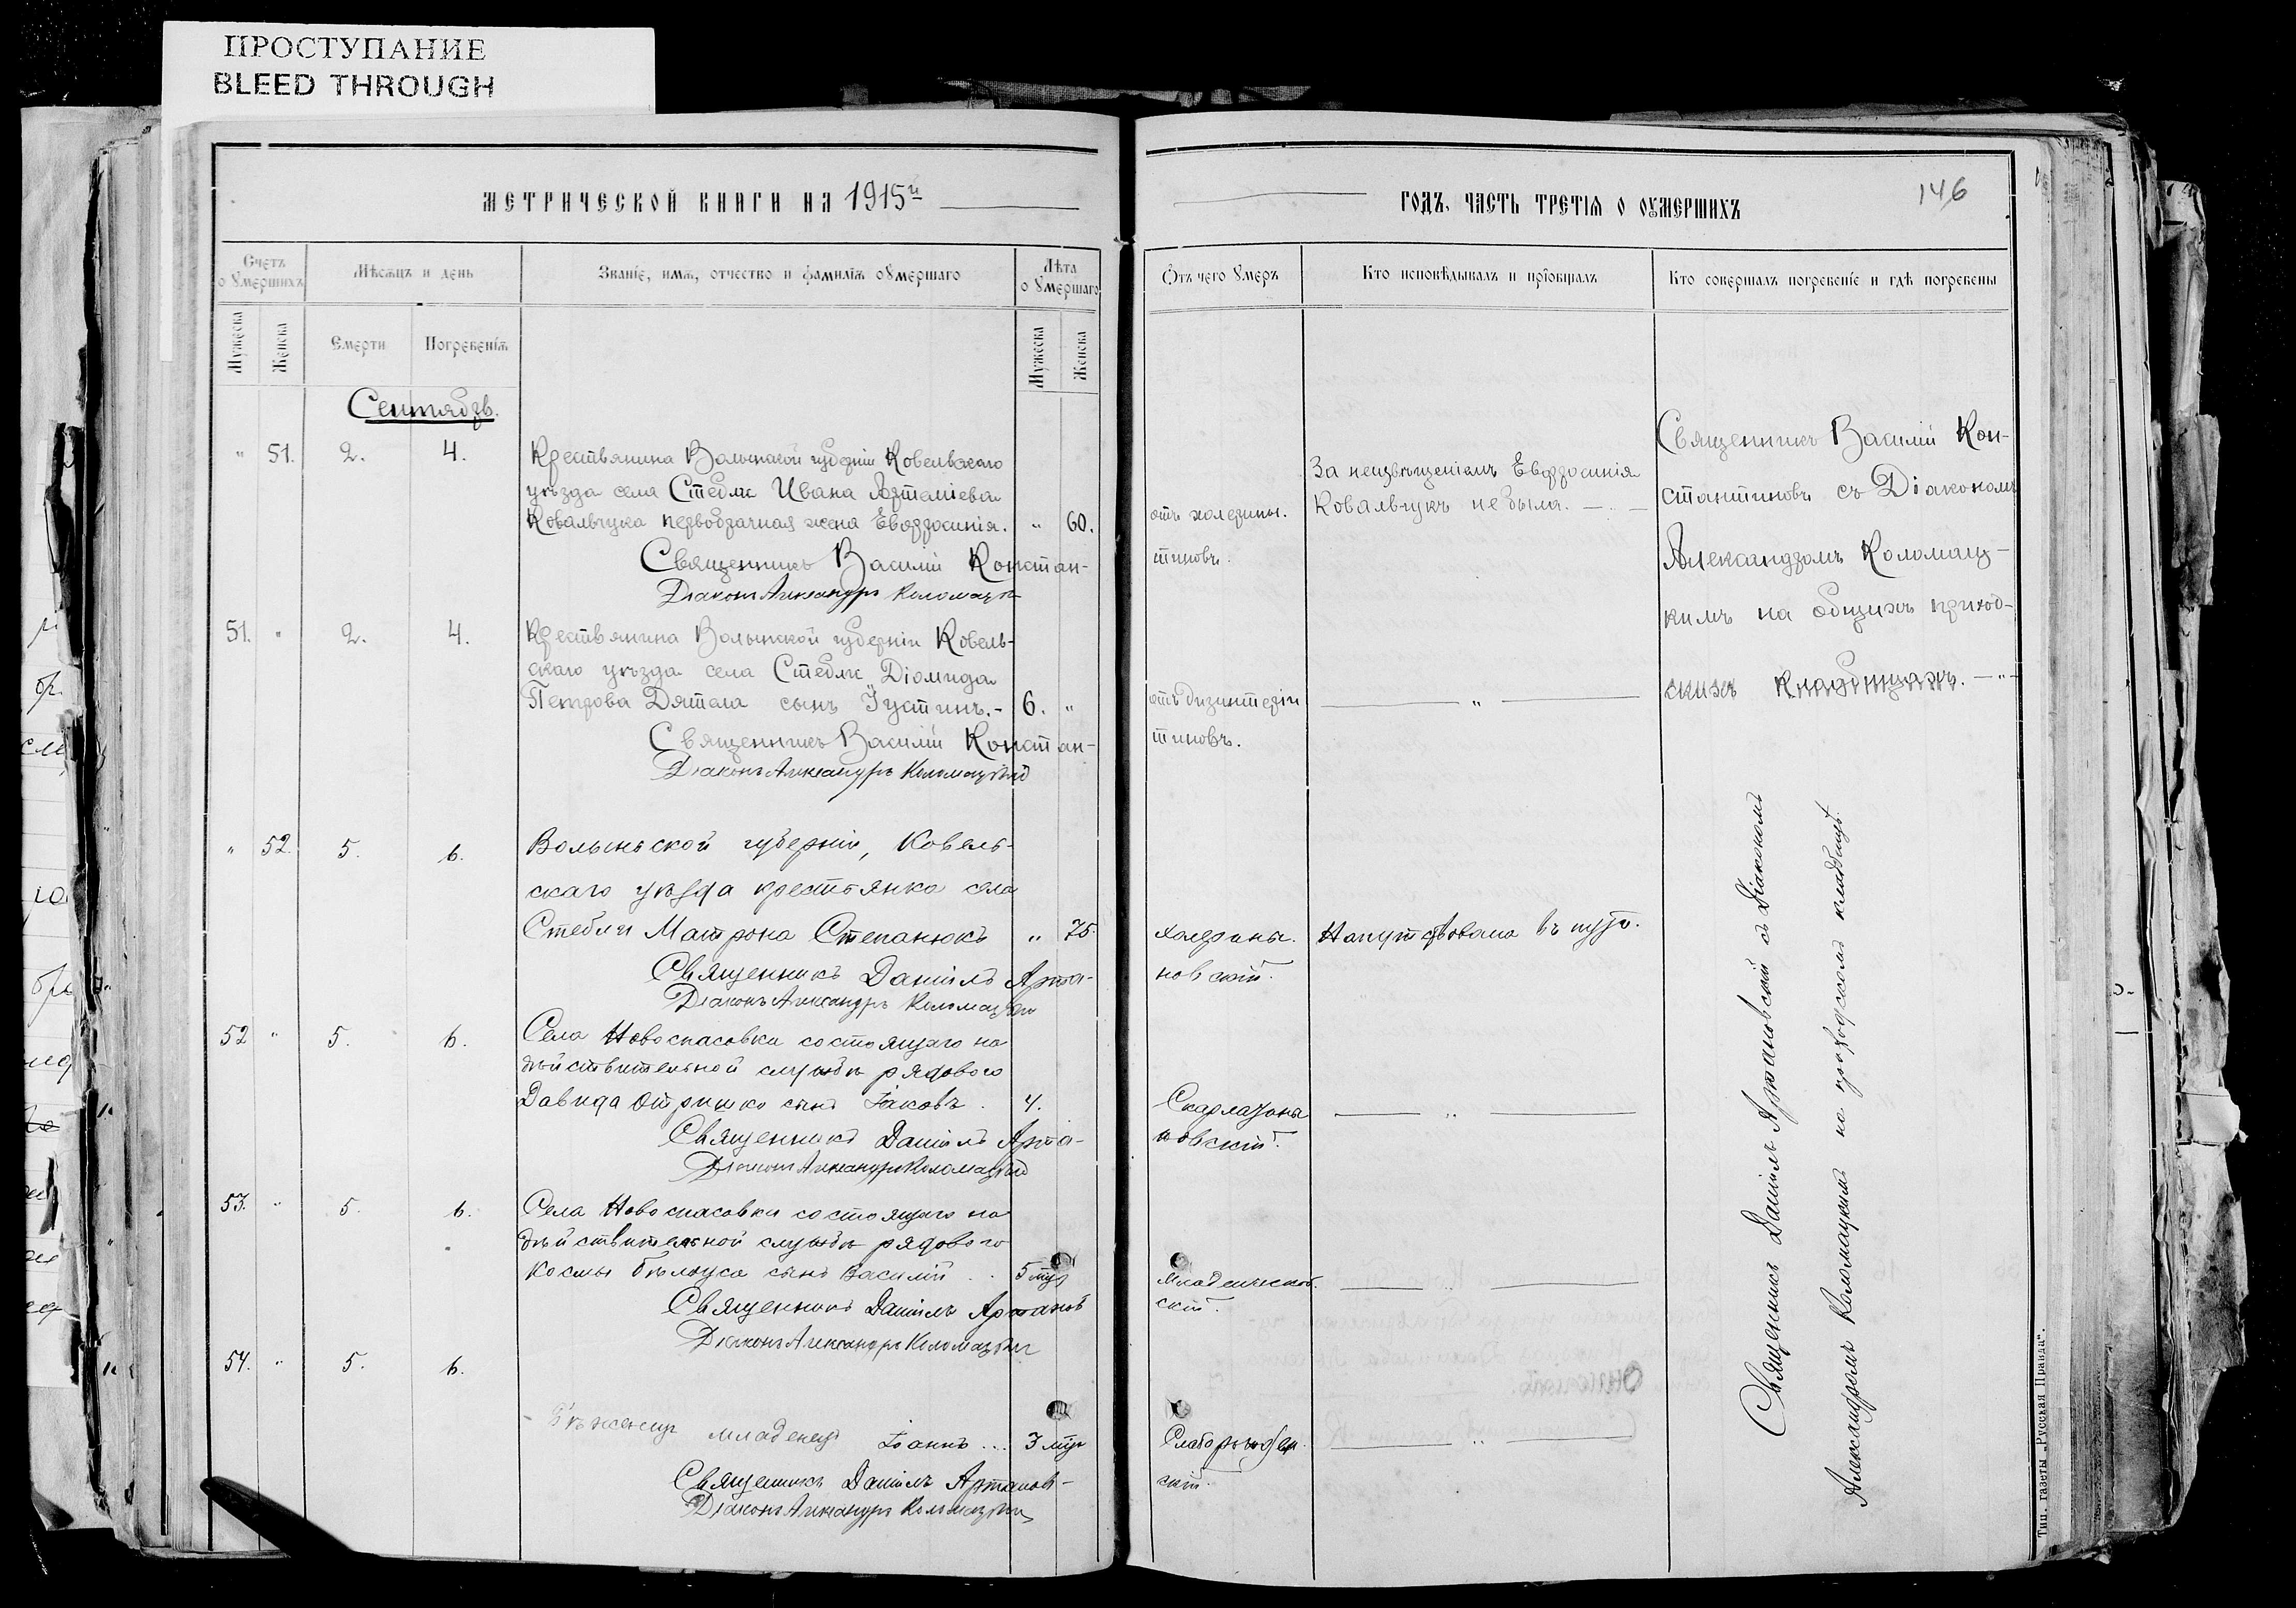 ПРОСТУПАНИЕ
BLEED THROUGH
МЕТРИЧЕСКОЙ КНИГИ НА 1915й
Счетъ оумершихъ
Мѣсяцъ и день
Званіе, имя, отчество и фамилія оумершаго
Лѣта оумершаго
Мужеска
Женска
Смерти
Погребенія
Мужеска
Женска
Сентябрь.
" 51. 2. 4. Крестьянина Волынской губерніи Ковельскаго
уѣзда села Стебли Ивана Артеміева
Ковальчука первобрачная жена Евфросинія. " 60.
Священникъ Василій Констан-
Діаконъ Александръ Коломацкій
51. " 2. 4. Крестьянина Волынской губерніи Ковель-
скаго уѣзда села Стебли Діомида
Петрова Дятела сынъ Іустинъ. - 6. "
Священникъ Василій Констан-
Діаконъ Александръ Коломацкій
" 52. 5. 6. Волынской губерніи, Ковель-
скаго уѣзда крестьянка села
Стебли Матрона Степанюкъ " 75.
Священникъ Даніилъ Арта-
Діаконъ Александръ Коломацкій
52 " 5. 6. Села Новоспасовки состоящаго на
дѣйствительной службѣ рядового
Давида Отришко сынъ Іаковъ. 4.
Священникъ Даніилъ Арта-
Діаконъ Александръ Коломацкій
53. " 5. 6. Села Новоспасовки состоящаго на
дѣйствительной службѣ рядового
Космы Бѣлоуса сынъ Василій .. 5 мѣс
Священникъ Даніилъ Артанов
Діаконъ Александръ Коломацкій
54. " 5. 6.
Бѣженец младенец Іоаннъ ... 3 мѣс
Священникъ Даніилъ Артанов-
Діаконъ Александръ Коломацкій
ГОДЪ, ЧАСТЬ ТРЕТІЯ О ОУМЕРШИХЪ
146
Отъ чего оумеръ
Кто исповѣдывалъ и пріобщалъ
Кто совершалъ погребеніе и гдѣ погребены
отъ холерины.
тиновъ.
За неизвѣщеніемъ Евфросинія
Ковальчукъ не была.
Священникъ Василій Кон-
стантиновъ съ Діакономъ
Александромъ Коломац-
кимъ на общихъ приход-
скихъ кладбищахъ. — " —
отъ дизинтеріи "
тиновъ.
Холерины. Напутствована въ
новскій.
Скарлатины "
новскій.
Младенческой. "
скій.
"
скій.
Священникъ Даніилъ Артановскій съ Діакономъ
Александромъ Коломацкимъ на приходскомъ кладбищѣ.
Тип. газеты „Русская Правда“.